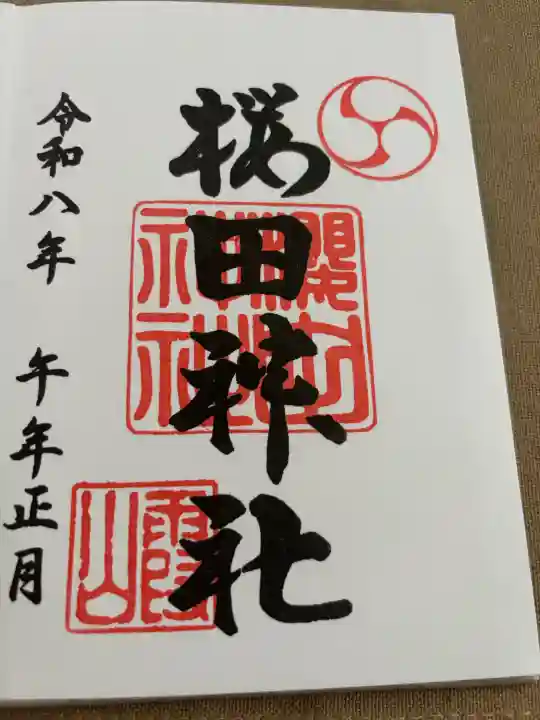 桜田神社
令和八年 午年正月
霞山